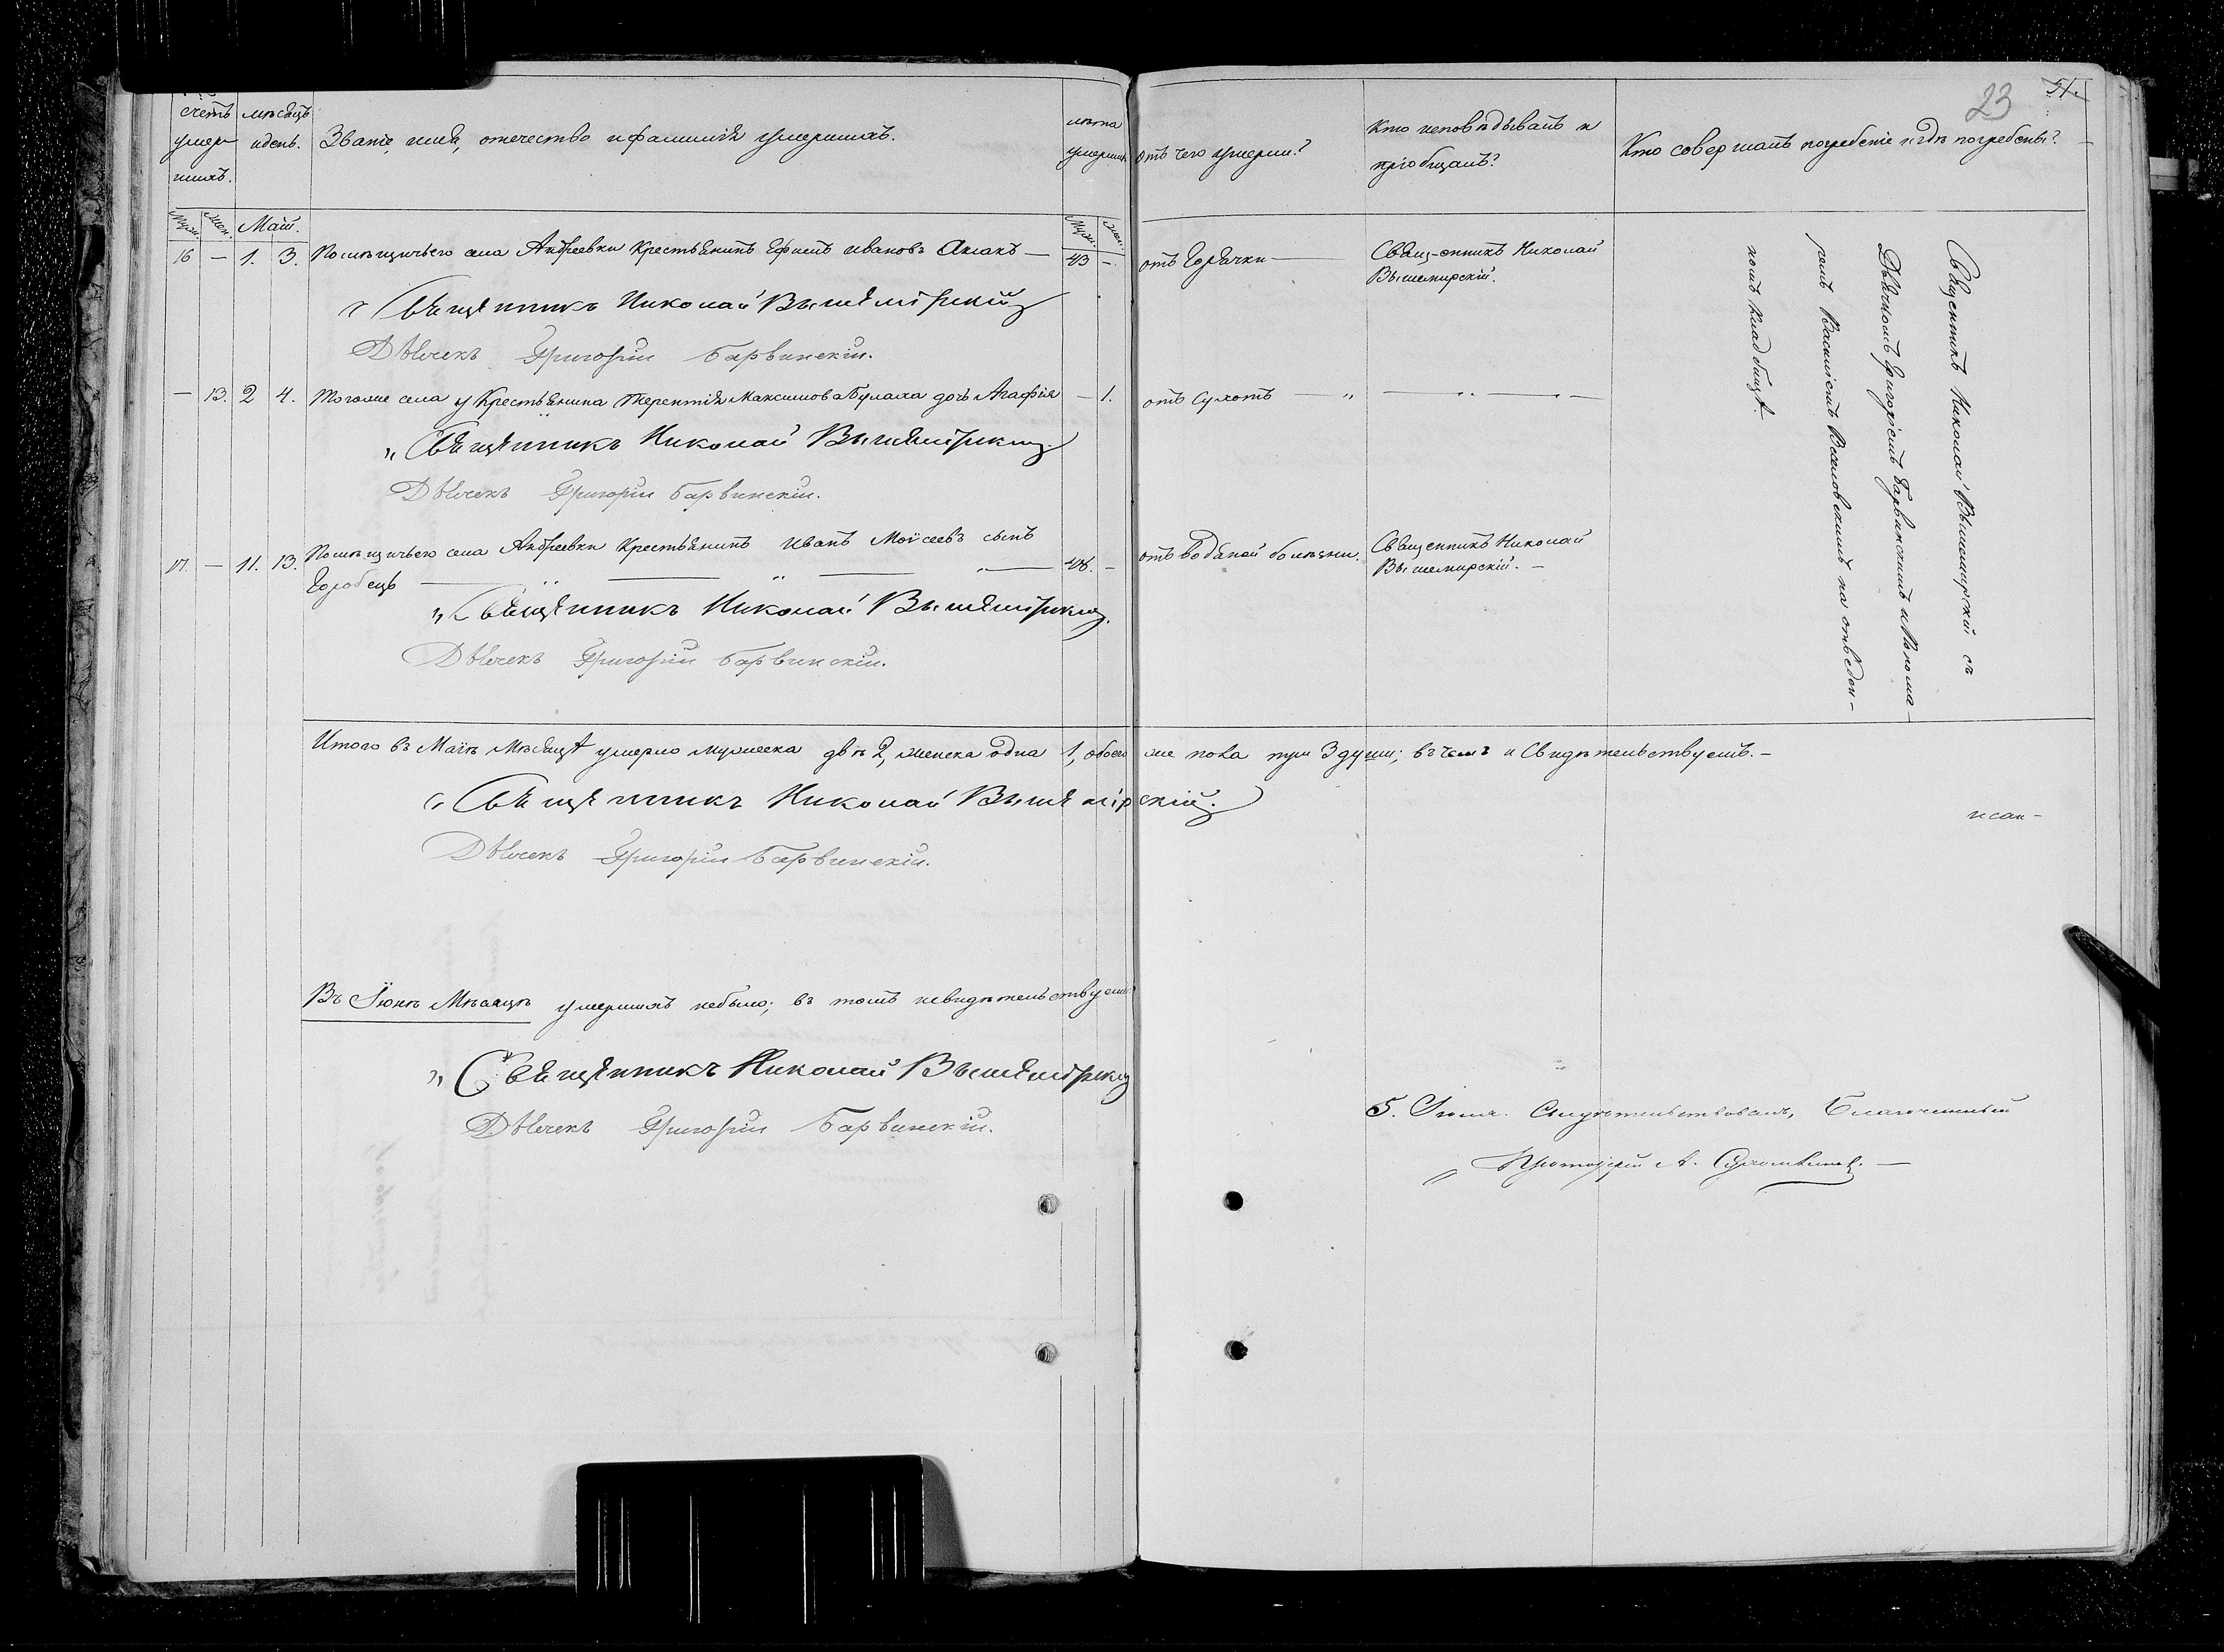 23 51.
счетъ умер-шихъ.
мѣсяцъ и день.
Званіе, имя, отечество и фамилія умершихъ.
лѣта умерших
отъ чего умерли?
Кто исповѣдывалъ и пріобщалъ?
Кто совершалъ погребеніе и гдѣ погребены?
Муж. Жен. Май. Муж. Жен.
16 — 1. 3. Помѣщичьего села Андреевки Крестьянинъ Ефимъ Ивановъ — 43 — отъ Горячки — Священникъ Николай
Вышемирскій.
„ Священникъ Николай Вышемірскій
Дьячекъ Григорій Барвинскій.
— 13. 2 4. Тогоже села у Крестьянина Терентія Максимова Булаха дочь Агафія — 1. отъ Сухотъ — „ — „ —
„ Священникъ Николай Вышемірскій.
Дьячекъ Григорій Барвинскій.
17. — 11. 13. Помѣщичьего села Андреевки Крестьянинъ Иванъ Моѵсеевъ сынъ 48. — отъ водяной болѣзни. Священникъ Николай
Горобецъ — „ — „ — „ — Вышемирскій. —
„ Священникъ Николай Вышемірскій.
Дьячекъ Григорій Барвинскій.
Священникъ Николай Вышемирскій съ
Дьячкомъ Григоріемъ Барвинскимъ и Понома-
ремъ Василіемъ Веселовскимъ на отведен-
номъ кладбищѣ.
Итого въ Маѣ Мѣсяцѣ умерло мужеска двѣ 2, женска одна 1, обоего же пола три 3 души; въ чемъ и Свидѣтельствуемъ. —
„ Священникъ Николай Вышемірскій.
Дьячекъ Григорій Барвинскій.
Въ Іюнѣ Мѣсяцѣ умершихъ небыло; въ томъ исвидѣтельствуемъ:
„ Священникъ Николай Вышемірскій
Дьячекъ Григорій Барвинскій.
5. Іюля. Свидѣтельствовалъ, Благочинный
Протоіерей А.